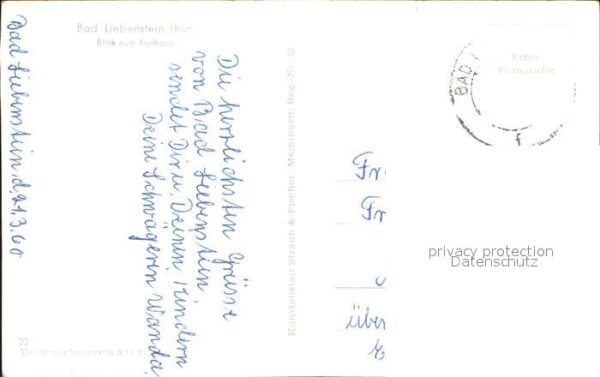 Bad Liebenstein, Thür.
Blick zum Kurhaus
Bad Liebenstein, d. 21.3.60
Die herzlichsten Grüsse
von Bad Liebenstein,
sendet Dir u. Deinen Kindern
Deine Schwägerin Wanda
Kunstanstalt Straub & Fischer, Meiningen, Reg.-Nr. 22
22
Verbraucherpreis
BAD
f
Echte
Fotografie
Fr
Fr
über
privacy protection
Datenschutz